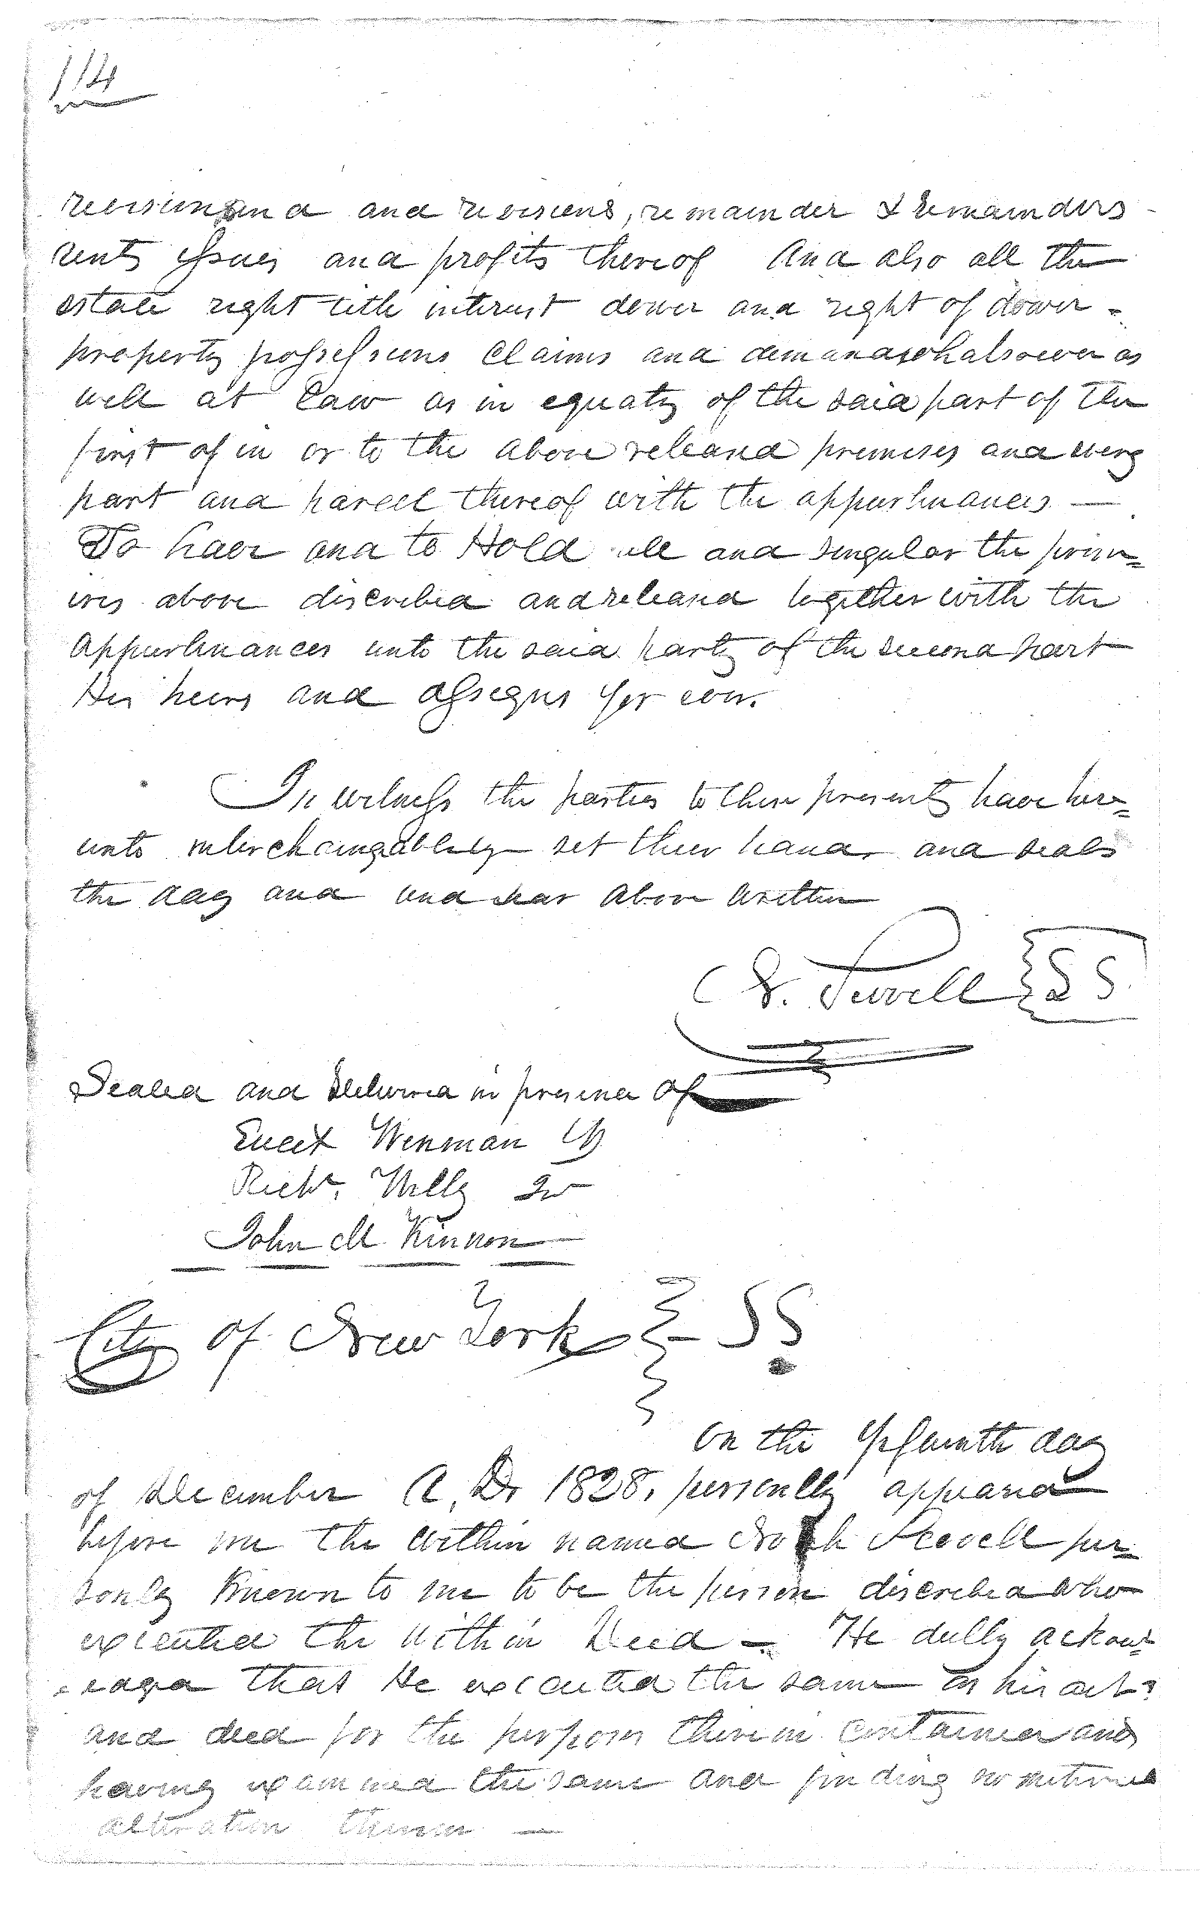 114
reversion and and revisions, remainder & remainders
rents issues and profits thereof And also all the
estate right title interest dower and right of dower -
property possessions claims and demands whatsoever as
well at Law as in equaty of the said part of the
first of in or to the above releasd premises and every
part and parcel thereof with the appurtenances —
To have and to Hold all and singular the prem=
ises above discribed and releasd together with the
appurtenances unto the said party of the second part
His heirs and assigns for ever.
In witness the parties to these presents have here=
unto interchangably set their hands and seals
the day and and year above written
Sewell SS
Sealed and Delivered in presence of
Wenman
Richd.
John M Kinnon
City of New York } SS
On the day
of December A. D. 1828, personlly appeared
before me the within named Noah Sewell per=
sonly known to me to be the person discribed who
executed the within Deed — He dully acknow=
ledgd that He executed the same as his act
and deed for the purposes therein contained and
having examined the same and finding no
alteration therein —